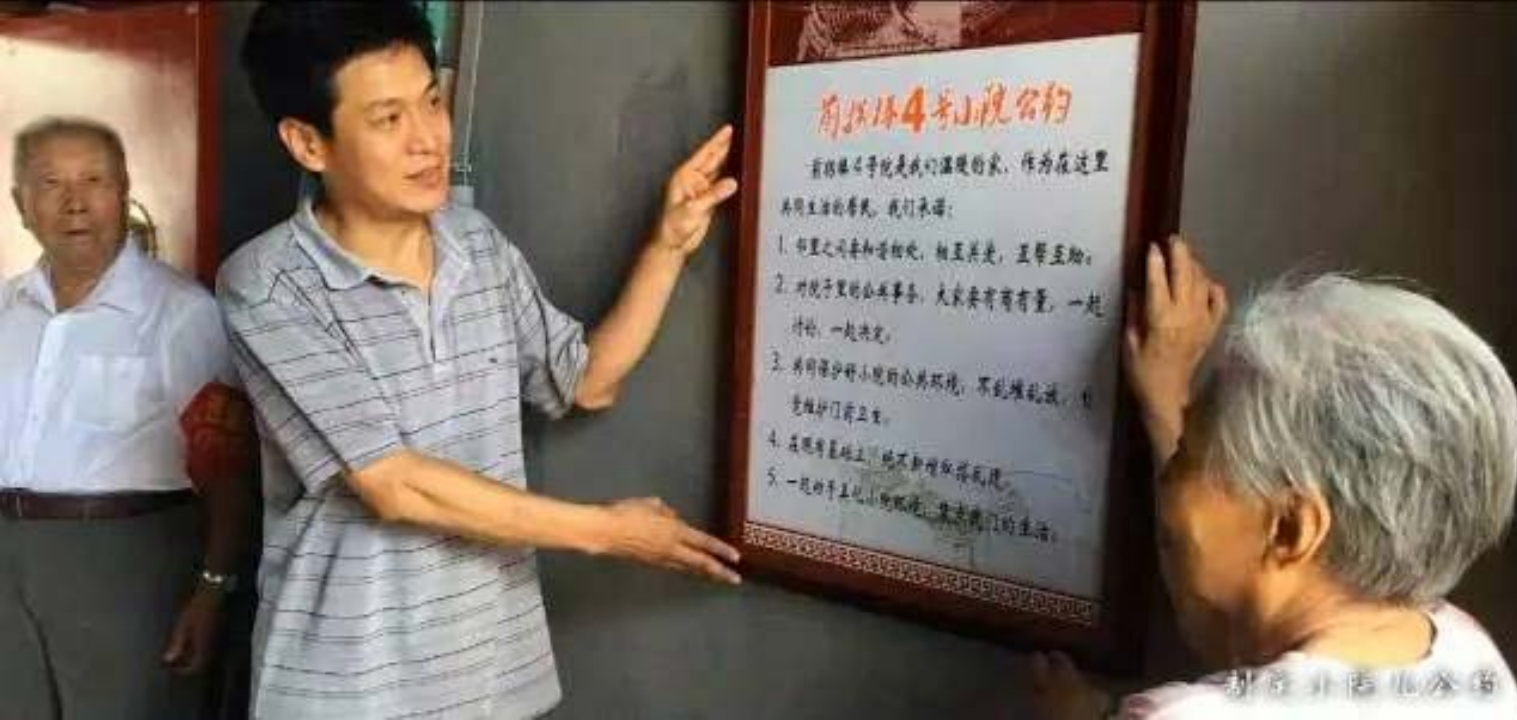 前拐棒4号小院公约
前拐棒4号院是我们温暖的家，作为在这里
共同生活的居民，我们承诺：
1. 邻里之间要和谐相处，相互关爱，互帮互助。
2. 对院子里的公共事务，大家要有商有量，一起
讨论、一起决定。
3. 共同保护好小院的公共环境，不乱堆乱放，自
觉维护门前卫生。
4. 在现有基础上 不新增私搭乱建。
5. 一起动手美化小院环境， 我们的生活。
制定小院儿公约